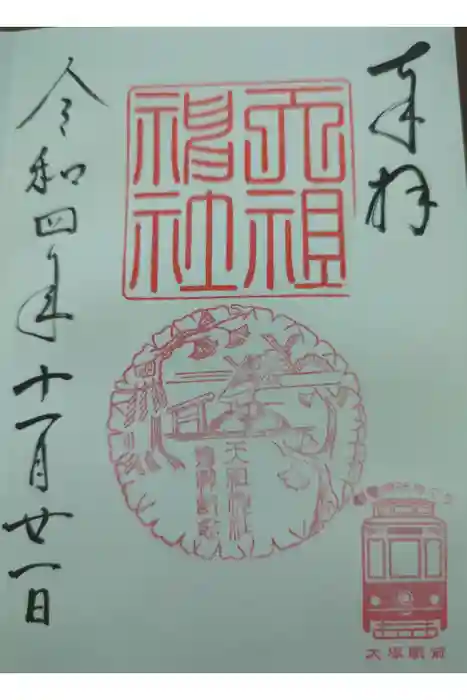 奉拝
天祖
神社
天祖神社
令和四年十一月廿一日
大塚駅前